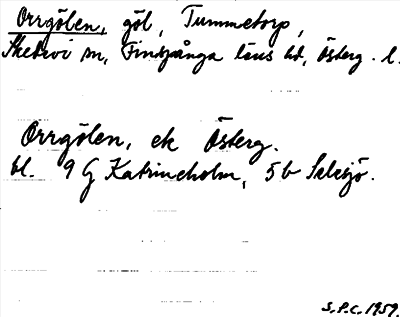 Orrgölen, göl, Tummetorp,
Skedevi sn, Finspånga läns hd, Österg. l.
Orrgölen, ek Österg.
bl. 9 G Katrineholm, 5 b
S.P.C. 1959.